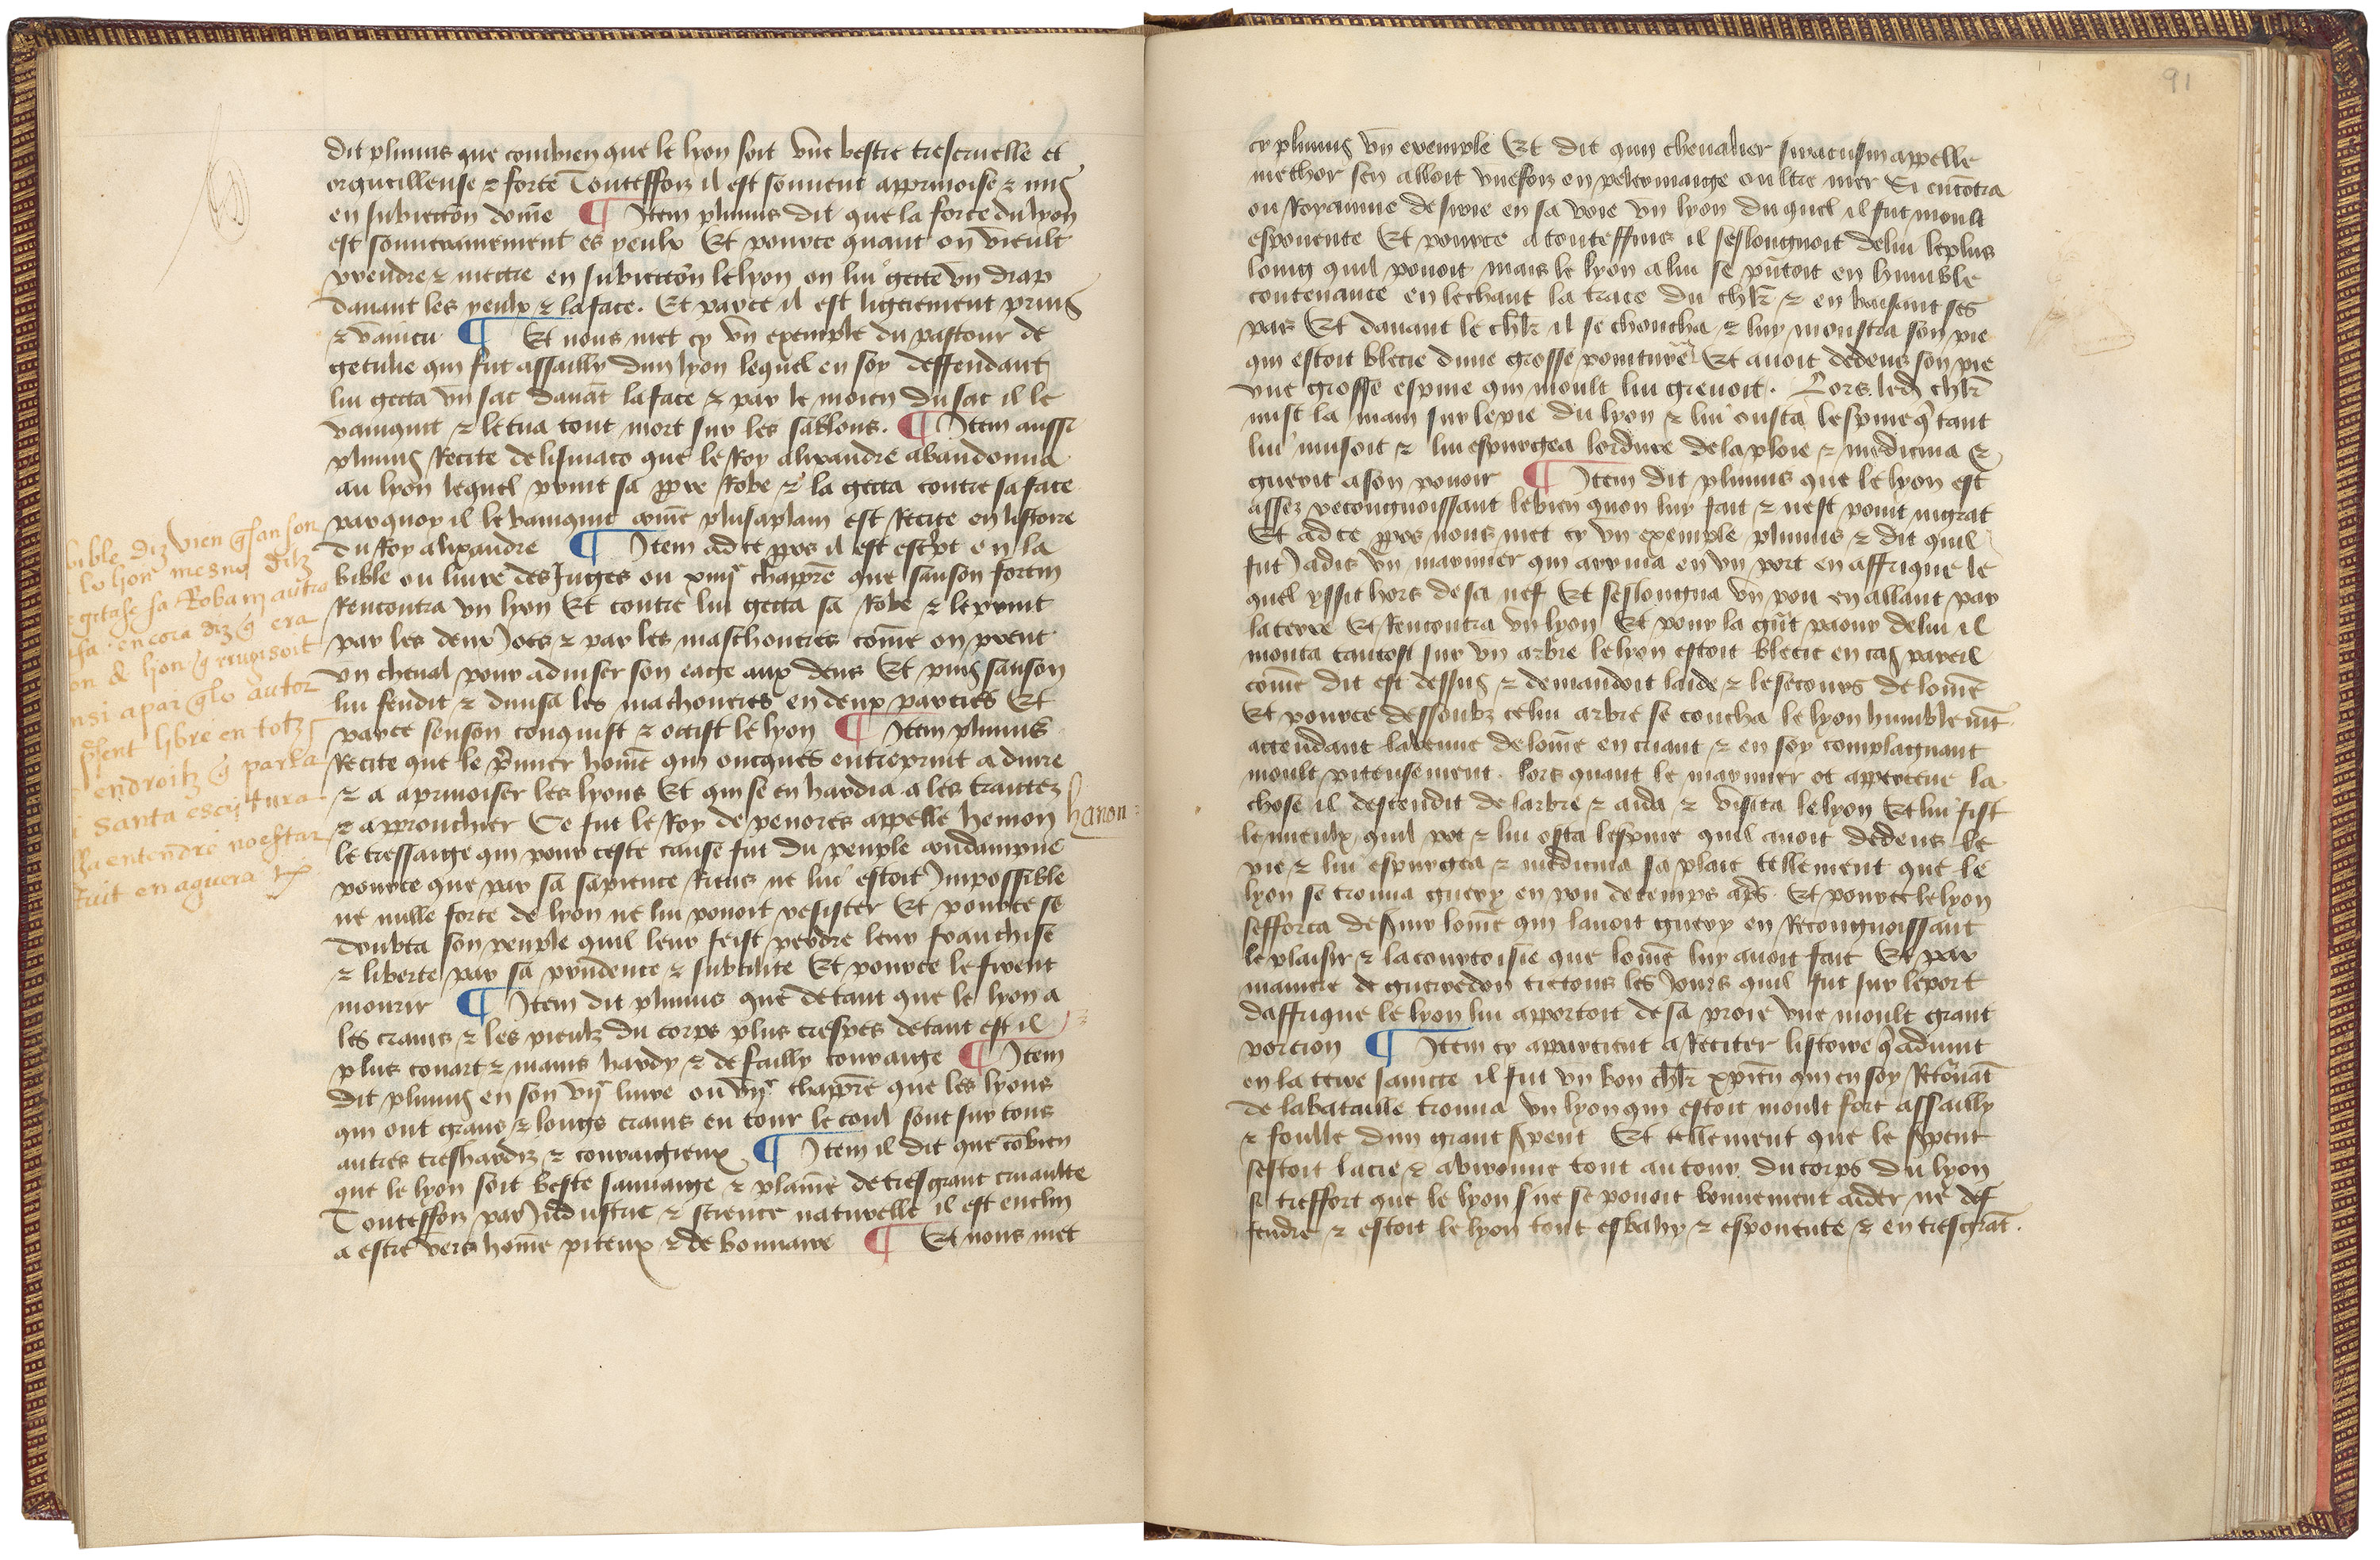 dit plinius que combien que le lyon soit vne beste trescruelle et
orgueilleuse & forte Touteffoiz il est souuent apprinoise & mis
en subiection dome ¶ Item plinius dit que la force du lyon
est souuerainement es yeulx Et pource quant on vieult
prendre & mectre en subiection le lyon on lui gecte vn drap
dauant les yeulx & la face. Et parce il est ligierement prins
& vaincu ¶ Et nous met cy vn exemple du pastour de
getulie qui fut assailly dun lyon lequel en soy deffendant
lui gecta vn sac dauāt la face & par le moien du sac il le
vainquit & le tua tout mort sur les sablons. ¶ Item aussi
plinius Recite de lismaco que le Roy alixandre abandonna
au lyon lequel print sa ppre Robe & la gecta contre sa face
parquoy il le vainquit cōme plusaplain est Recite en listoire
du Roy alixandre ¶ Item ad ce ppos il est escrpt en la
bible ou liure des Juges ou xiiijᵉ chappre que sanson fortin
Rencontra vn lyon Et contre lui gecta sa Robe & le print
par les deux Joes & par les maschoueres cōme on prent
vn cheual pour aduiser son eage aux dens Et puis sanson
lui fendit & diuisa les machoueres en deux parties Et
parce senson conquist & occist le lyon ¶ Item plinius
Recite que le pmier home qui oncques entreprint a duire
& a aprinoiser les lyons Et qui se en hardia a les traictez
& approuchier Ce fut le Roy de penores appelle hemon
le tressaige qui pour ceste cause fut du peuple condampne
pource que par sa sapience Riens ne lui estoit Impossible
ne nulle force de lyon ne lui pouoit resister Et pource se
doubta son peuple quil leur feist perdre leur franchise
& liberte par sa prudence & subtilite Et pource le firent
mourir ¶ Item dit plinius que de tant que le lyon a
les crains & les pieulz du corps plus crespes de tant est il
plus couart & mains hardy & de failly couraige ¶ Item
dit plinius en son vijᵉ liure ou vijᵉ chappre que les lyons
qui ont grans & longs crains en tour le coul sont sur tous
autres treshardiz & couraigieux ¶ Item il dit que cōbien
que le lyon soit beste sauuaige & plaine de tresgrant cruaulte
Touteffoiz par Industrie & science naturelle il est enclin
a estre vers home piteux & de bonnaire ¶ Et nous met
bible diz vien q sanson
lo lyon mesmo diz
gitase sa Roba m autra
encora diz q era
lyon q rrugisoit
nsi apai q lo autor
plent libre en totz
endroitz q parla
santa escriptura
entendre noestar
en aguera
hanon
91
cy plinius vn exemple Et dit quun cheualier siracusin appelle
methor sen alloit vnefoiz en pelermaige oultre mer Si encōtra
ou Royaume de sirie en sa voie vn lyon du quel il fut moult
espouente Et pource a touteffins il seslongnoit de lui le plus
loing quil pouoit mais le lyon a lui se pntoit en humble
contenance en lechant la trace du chlr & en baisant ses
pas Et dauant le chlr il se choucha & luy monstra son pie
qui estoit blecie dune grosse pointure Et auoit dedens son pie
vne grosse espine qui moult lui greuoit. Lors led chlr
mist la main sur le pie du lyon & lui ousta lespine q tant
lui nuisoit & lui espurgea lordure de la ploie & medicina &
guerit a son pouoir ¶ Item dit plinius que le lyon est
assez recongnoissant le bien quon luy fait & nest point ingrat
Et ad ce ppos nous met cy vn exemple plinius & dit quil
fut Jadis vn marinier qui arriua en vn port en affrique le
quel yssit hors de sa nef Et seslongna vn pou en allant par
la terre Et Rencontra vn lyon Et pour la grāt paour de lui il
monta tantost sur vn arbre le lyon estoit blecie en cas pareil
cōme dit est dessus & demandoit laide & le secours de lome
Et pource dessoubz celui arbre se coucha le lyon humblemt
actendant la venue de lome en criant & en soy complaignant
moult piteusement. lors quant le marinier ot apperceue la
chose il descendit de larbre & aida & visita le lyon Et lui fist
le mieulx quil pot & lui osta lespine quil auoit dedens le
pie & lui espurgea & medicina sa plaie tellement que le
lyon se trouua guery en pou de temps aps Et pource le lyon
sefforca de suir lome qui lauoit guery en Recongnoissant
le plaisir & la courtoisie que lome luy auoit fait Et par
maniere de guerredon trestous les Jours quil fut sur le port
daffrique le lyon lui apportoit de sa proie vne moult grant
porcion ¶ Item cy appartient a Reciter listoire q aduint
en la terre saincte il fut vn bon chlr xpien qui en soy Retōnāt
de la bataille trouua vn lyon qui estoit moult fort assailly
& foulle dun grant spent Et tellement que le spent
sestoit lacie & abironne tout au tour du corps du lyon
si tresfort que le lyon ne se pouoit bonnement aider ne def
fendre & estoit le lyon tout esbahy & espouente & en tresgrāt.